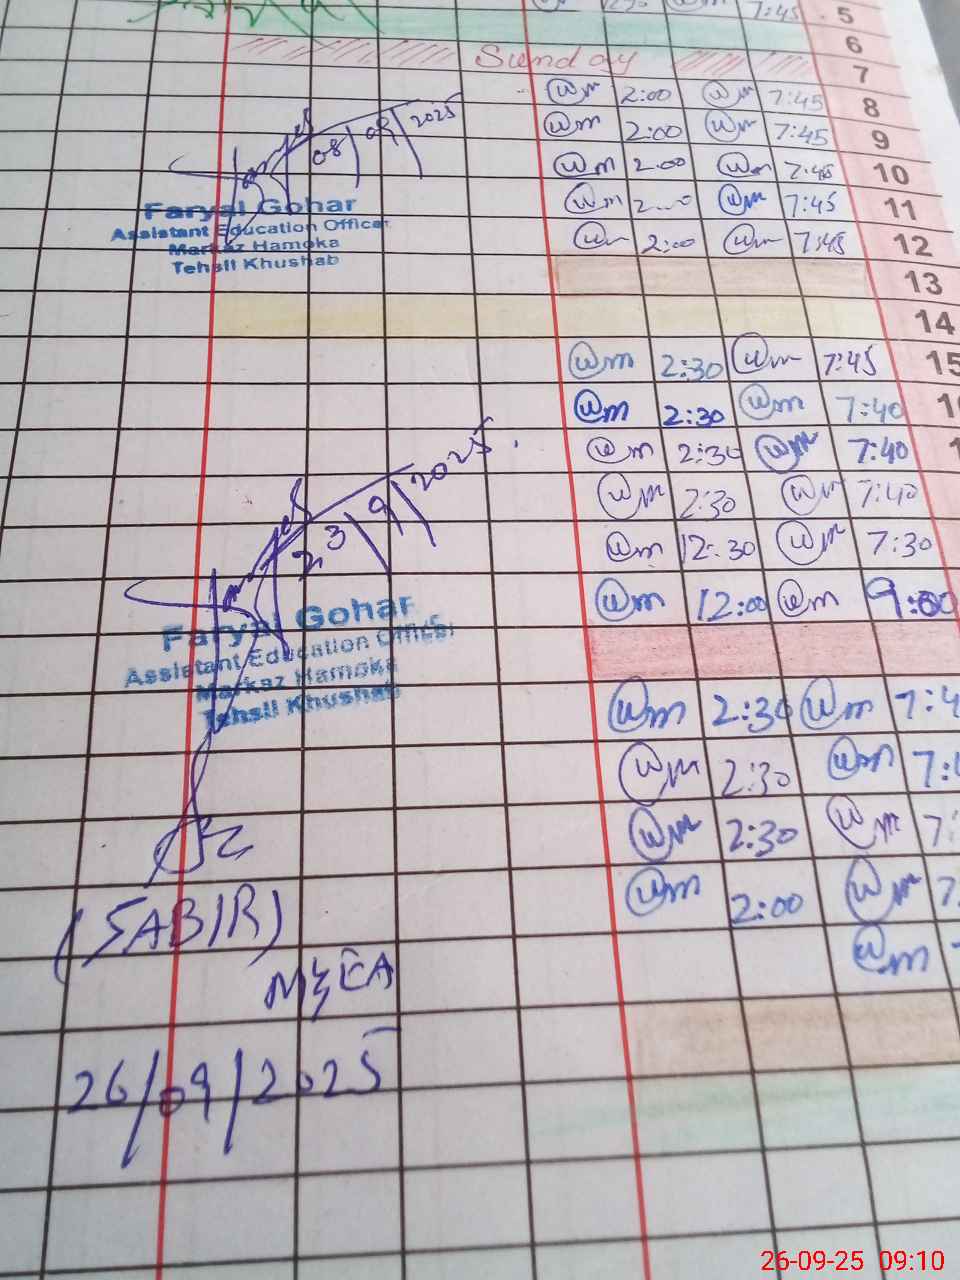 7:45 5
6
Sunday 7
2:00 7:45 8
08/09/2025 2:00 7:45 9
2:00 7:45 10
Faryal Gohar 7:45 11
Assistant Education Officer
Markaz Hamoka 2:00 7:45 12
Tehsil Khushab
13
14
wm 2:30 wm 7:45 15
wm 2:30 wm 7:40
wm 2:30 wm 7:40
23/9/2025 wm 2:30 wm 7:40
wm 12:30 wm 7:30
Faryal Gohar wm 12:00 wm 9:00
Assistant Education Officer
Markaz Hamoka
Tehsil Khushab
wm 2:30 wm
wm 2:30 wm
wm 2:30 wm
wm 2:00 wm
(SABIR)
wm
MEA
26/09/2025
26-09-25 09:10